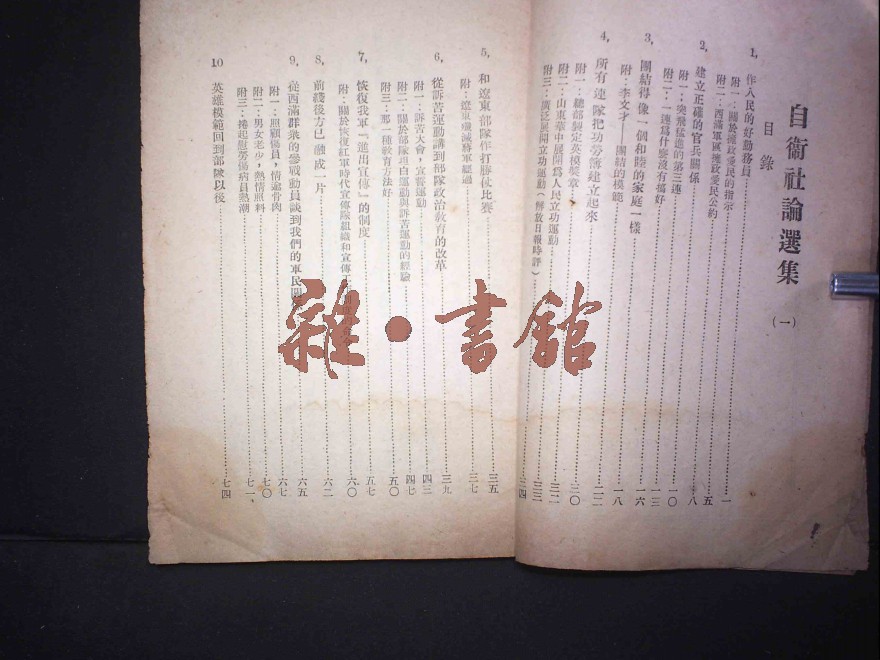 自衞社論選集
（一）
目錄
1, 作人民的好勤務員…………一
附一：關於擁政愛民的指示
附二：西滿軍區擁政愛民公約…………五
2, 建立正確的官兵關係…………八
附一：突飛猛進的第三連…………一〇
附二：一連爲什麼沒有搞好…………一三
3, 團結得像一個和睦的家庭一樣…………一六
附：李文才——團結的模範…………一八
4, 所有連隊把功勞簿建立起來…………二二
附一：總部製定英模獎章…………三〇
附二：山東華中展開爲人民立功運動…………三二
附三：廣泛展開立功運動（解放日報時評）…………三三
5, 和遼東部隊作打勝仗比賽…………三五
附：遼東殲滅蔣軍經過…………三七
6, 從訴苦運動講到部隊政治教育的改革…………三九
附一：訴苦大會，宣誓運動…………四三
附二：關於部隊坦白運動與訴苦運動的經驗…………四七
附三：那一種教育方法好…………五〇
7, 恢復我軍『進出宣傳』的制度…………五七
附：關於恢復紅軍時代宣傳隊組織和宣傳工…………六〇
8, 前綫後方已融成一片…………六二
9, 從西滿群衆的參戰動員談到我們的軍民關…………六五
附一：照顧傷員，情逾骨肉…………六七
附二：男女老少，熱情照料…………七〇
附三：捲起慰勞傷病員熱潮…………七一
10 英雄模範回到部隊以後…………七四
雜·書舘